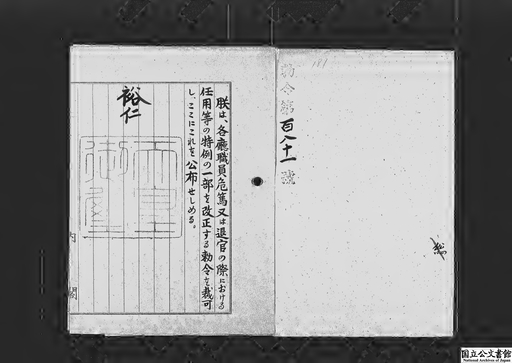 勅令第百八十一號
181
朕は、各廳職員危篤又は退官の際における
任用等の特例の一部を改正する勅令を裁可
し、ここにこれを公布せしめる。
裕仁
天皇御璽
内閣
国立公文書館
National Archives of Japan